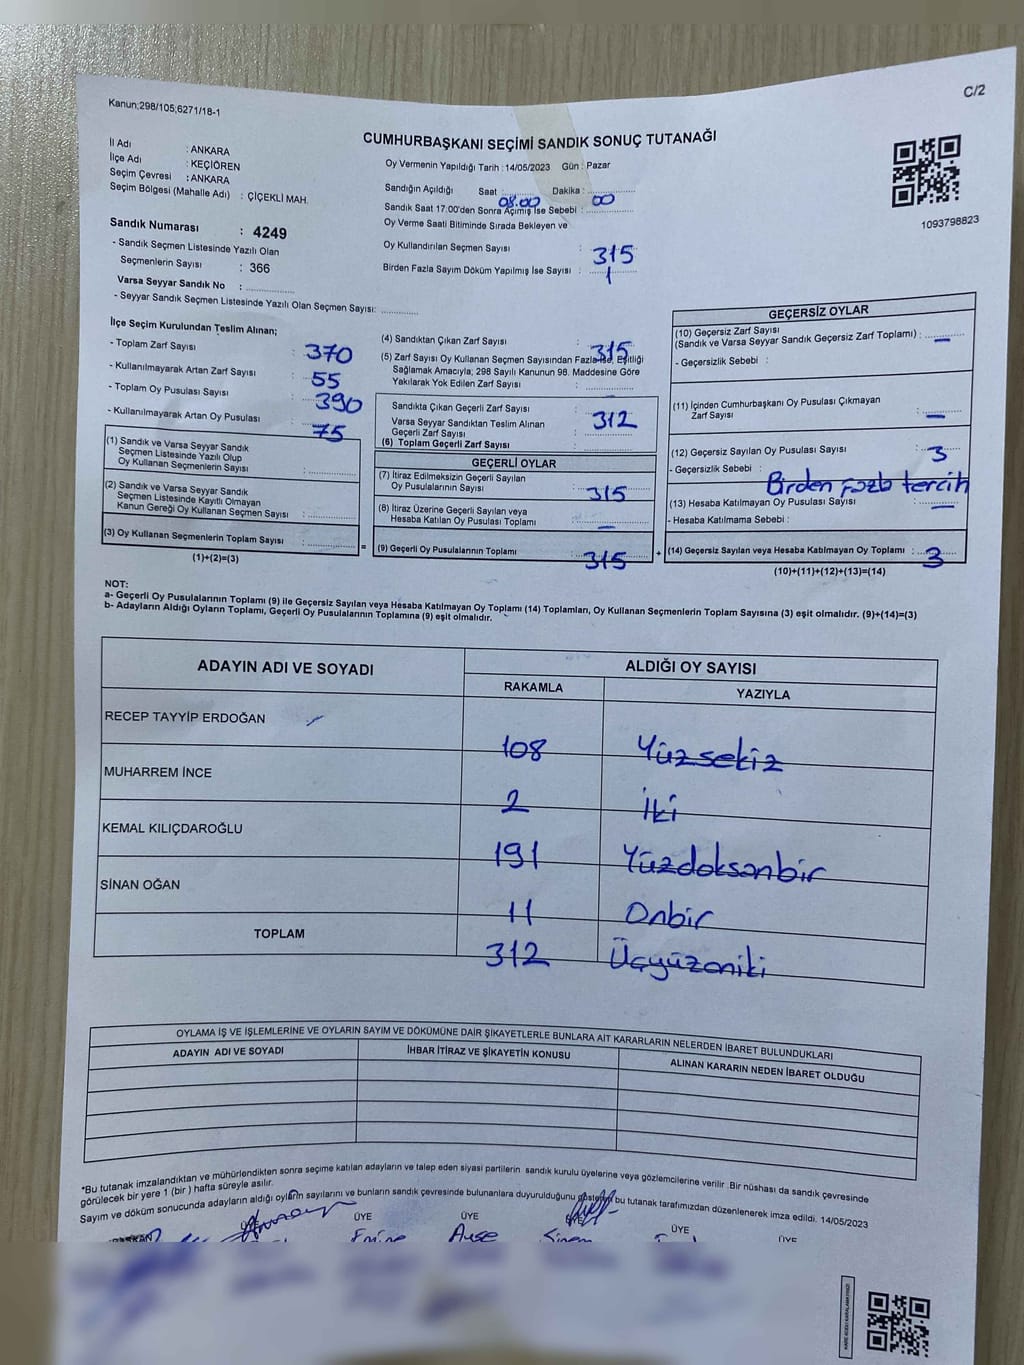 Kanun;298/105;6271/18-1
C/2
CUMHURBAŞKANI SEÇİMİ SANDIK SONUÇ TUTANAĞI
İl Adı : ANKARA
İlçe Adı : KEÇİÖREN
Seçim Çevresi : ANKARA
Seçim Bölgesi (Mahalle Adı) : ÇİÇEKLİ MAH.
Sandık Numarası : 4249
- Sandık Seçmen Listesinde Yazılı Olan
Seçmenlerin Sayısı : 366
Varsa Seyyar Sandık No : ..............
- Seyyar Sandık Seçmen Listesinde Yazılı Olan Seçmen Sayısı: ............
Oy Vermenin Yapıldığı Tarih : 14/05/2023 Gün : Pazar
Sandığın Açıldığı Saat 08.00 Dakika : 00
Sandık Saat 17:00'den Sonra Açımış İse Sebebi : ..............
Oy Verme Saati Bitiminde Sırada Bekleyen ve
Oy Kullandırılan Seçmen Sayısı : 315
Birden Fazla Sayım Döküm Yapılmış İse Sayısı : 1
1093798823
İlçe Seçim Kurulundan Teslim Alınan;
- Toplam Zarf Sayısı : 370
- Kullanılmayarak Artan Zarf Sayısı : 55
- Toplam Oy Pusulası Sayısı : 390
- Kullanılmayarak Artan Oy Pusulası : 75
(1) Sandık ve Varsa Seyyar Sandık
Seçmen Listesinde Yazılı Olup
Oy Kullanan Seçmenlerin Sayısı : ..............
(2) Sandık ve Varsa Seyyar Sandık
Seçmen Listesinde Kayıtlı Olmayan
Kanun Gereği Oy Kullanan Seçmen Sayısı : ..............
(3) Oy Kullanan Seçmenlerin Toplam Sayısı : ..............
(1)+(2)=(3)
(4) Sandıktan Çıkan Zarf Sayısı : 315
(5) Zarf Sayısı Oy Kullanan Seçmen Sayısından Fazla İse, Eşitliği
Sağlamak Amacıyla; 298 Sayılı Kanunun 98. Maddesine Göre
Yakılarak Yok Edilen Zarf Sayısı : ..............
Sandıkta Çıkan Geçerli Zarf Sayısı : 312
Varsa Seyyar Sandıktan Teslim Alınan
Geçerli Zarf Sayısı
(6) Toplam Geçerli Zarf Sayısı :
GEÇERLİ OYLAR
(7) İtiraz Edilmeksizin Geçerli Sayılan
Oy Pusulalarının Sayısı : 315
(8) İtiraz Üzerine Geçerli Sayılan veya
Hesaba Katılan Oy Pusulası Toplamı : —
= (9) Geçerli Oy Pusulalarının Toplamı : 315 +
GEÇERSİZ OYLAR
(10) Geçersiz Zarf Sayısı
(Sandık ve Varsa Seyyar Sandık Geçersiz Zarf Toplamı) : —
- Geçersizlik Sebebi :
(11) İçinden Cumhurbaşkanı Oy Pusulası Çıkmayan
Zarf Sayısı : —
(12) Geçersiz Sayılan Oy Pusulası Sayısı : 3
- Geçersizlik Sebebi : Birden fazla tercih
(13) Hesaba Katılmayan Oy Pusulası Sayısı : —
- Hesaba Katılmama Sebebi :
(14) Geçersiz Sayılan veya Hesaba Katılmayan Oy Toplamı : 3
(10)+(11)+(12)+(13)=(14)
NOT:
a- Geçerli Oy Pusulalarının Toplamı (9) ile Geçersiz Sayılan veya Hesaba Katılmayan Oy Toplamı (14) Toplamları, Oy Kullanan Seçmenlerin Toplam Sayısına (3) eşit olmalıdır. (9)+(14)=(3)
b- Adayların Aldığı Oyların Toplamı, Geçerli Oy Pusulalarının Toplamına (9) eşit olmalıdır.
ADAYIN ADI VE SOYADI ALDIĞI OY SAYISI
RAKAMLA YAZIYLA
RECEP TAYYİP ERDOĞAN 108 Yüzsekiz
MUHARREM İNCE 2 İki
KEMAL KILIÇDAROĞLU 191 Yüzdoksanbir
SİNAN OĞAN 11 Onbir
TOPLAM 312 Üçyüzoniki
OYLAMA İŞ VE İŞLEMLERİNE VE OYLARIN SAYIM VE DÖKÜMÜNE DAİR ŞİKAYETLERLE BUNLARA AİT KARARLARIN NELERDEN İBARET BULUNDUKLARI
ADAYIN ADI VE SOYADI İHBAR İTİRAZ VE ŞİKAYETİN KONUSU ALINAN KARARIN NEDEN İBARET OLDUĞU
*Bu tutanak imzalandıktan ve mühürlendikten sonra seçime katılan adayların ve talep eden siyasi partilerin sandık kurulu üyelerine veya gözlemcilerine verilir .Bir nüshası da sandık çevresinde
görülecek bir yere 1 (bir ) hafta süreyle asılır.
Sayım ve döküm sonucunda adayların aldığı oyların sayılarını ve bunların sandık çevresinde bulunanlara duyurulduğunu gösteren bu tutanak tarafımızdan düzenlenerek imza edildi. 14/05/2023
BAŞKAN ÜYE ÜYE ÜYE ÜYE ÜYE
Emine Ayşe Sinem